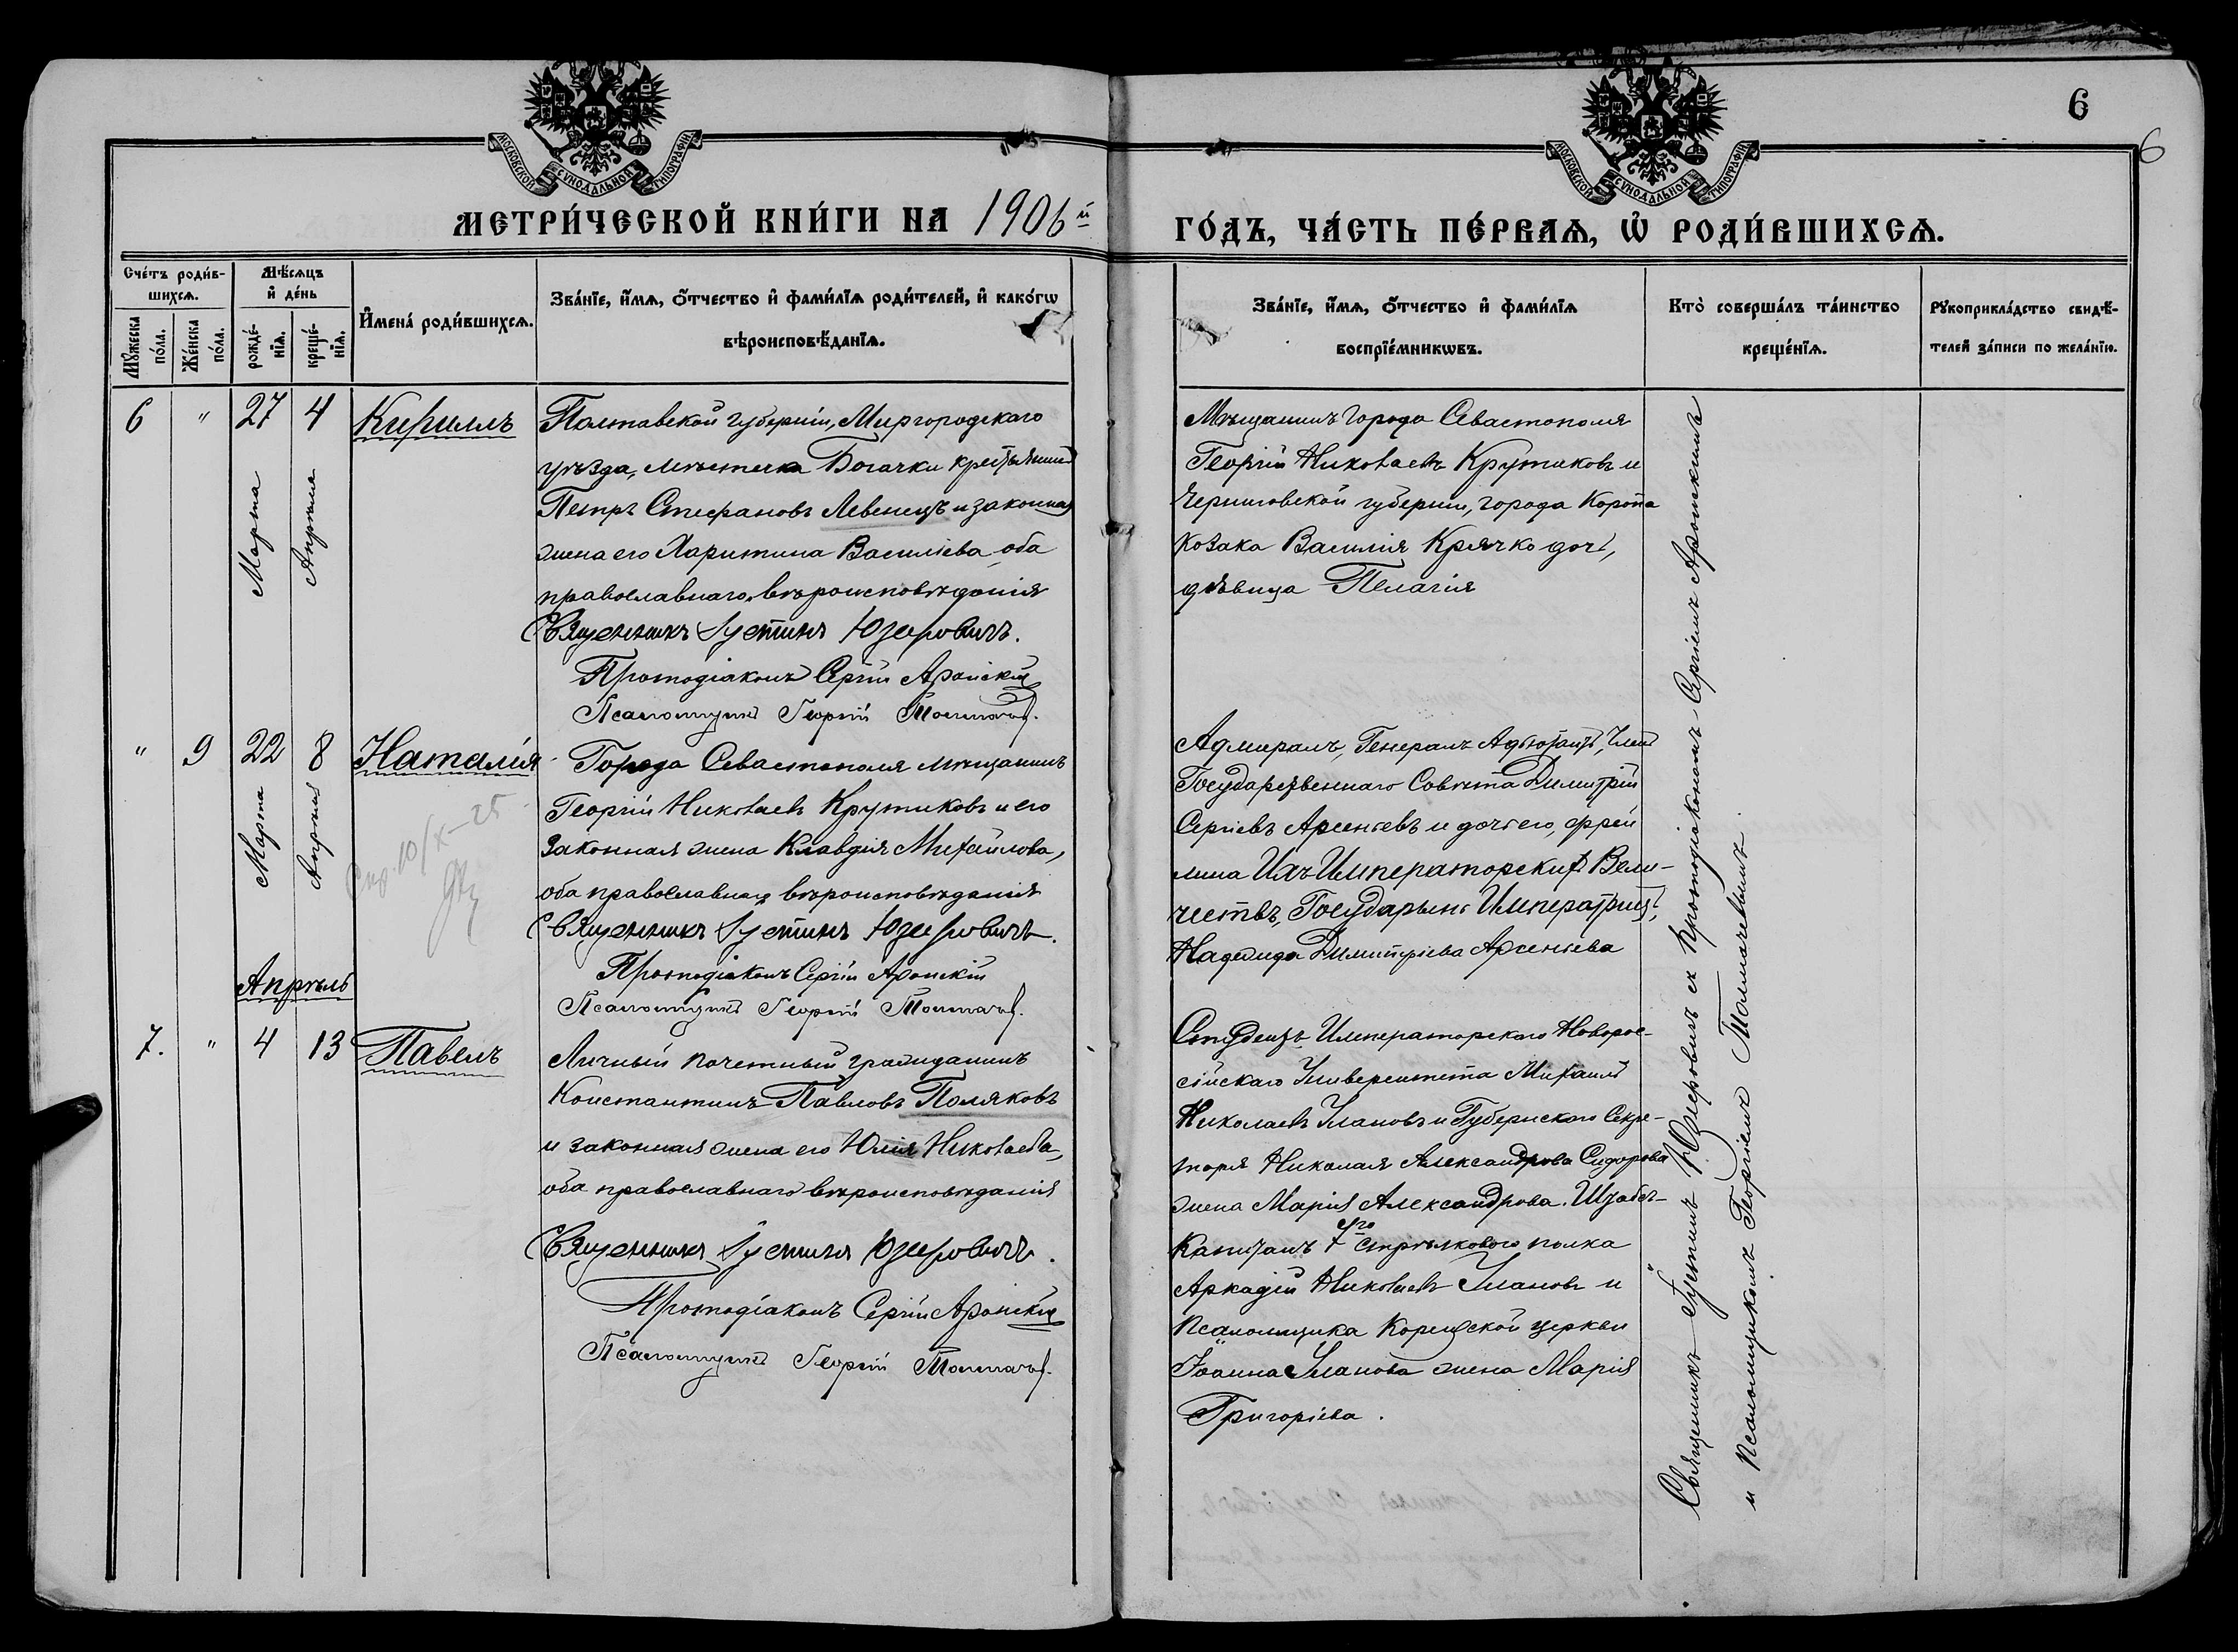 6
6
МОСКОВСКОЙ СѴНОДАЛЬНОЙ ТИПОГРАФІИ
МОСКОВСКОЙ СѴНОДАЛЬНОЙ ТИПОГРАФІИ
МЕТРИ́ЧЕСКОЙ КНИ́ГИ НА 1906й
ГО́ДЪ, ЧА́СТЬ ПЕ́РВАѦ, Ѡ҆ РОДИ́ВШИХСѦ.
Сче́тъ роди́в-
шихсѧ.
Мꙋ́жеска по́ла.
Же́нска по́ла.
Мѣ́сѧцъ
и҆ де́нь
рожде́-
нїѧ.
креще́-
нїѧ.
И҆мена̀ роди́вшихсѧ.
Зва́нїе, и҆́мѧ, ѻ҆́тчество и҆ фами́лїѧ роди́телей, и҆ како́гѡ
вѣроисповѣ́данїѧ.
Зва́нїе, и҆́мѧ, ѻ҆́тчество и҆ фами́лїѧ
воспрїе́мникѡвъ.
Кто̀ соверша́лъ та́инство
креще́нїѧ.
Рꙋкоприкла́дство свидѣ́-
телей за́писи по жела́нїю.
6 " 27 4 Кириллъ
Марта
Апрѣля
Полтавской губерніи, Миргородскаго
уѣзда, мѣстечка Богачки крестьянинъ
Петръ Стефановъ Левенецъ и законная
жена его Харитина Василіева, оба
православнаго вѣроисповѣданія
Священникъ Іустинъ Юзефовичъ.
Протодіаконъ Сергій Аронскій
Псаломщикъ Георгій Толмачев.
Мѣщанинъ города Севастополя
Георгій Николаевъ Крутиковъ и
Черниговской губерніи, города Коропа
козака Василія Крячко дочь,
дѣвица Пелагія
" 9 22 8 Наталія
Марта
Апрѣля
10/X-25
Города Севастополя мѣщанинъ
Георгій Николаевъ Крутиковъ и его
законная жена Клавдія Михайлова,
оба православнаго вѣроисповѣданія
Священникъ Іустинъ Юзефовичъ.
Протодіаконъ Сергій Аронскій
Псаломщикъ Георгій Толмачев.
Адмиралъ, Генералъ Адъютантъ, Членъ
Государственнаго Совѣта Димитрій
Сергіевъ Арсеньевъ и дочь его, фрей
лина Ихъ Императорскихъ Вели-
чествъ, Государынь Императрицъ,
Надежда Димитріева Арсеньева
Апрѣль
7. " 4 13 Павелъ
Личный почетный гражданинъ
Константинъ Павловъ Поляковъ
и законная жена его Юлія Николаева,
оба православнаго вѣроисповѣданія
Священникъ Іустинъ Юзефовичъ.
Протодіаконъ Сергій Аронскій
Псаломщикъ Георгій Толмачев.
Студентъ Императорскаго Новорос-
сійскаго Университета Михаилъ
Николаевъ Улановъ и Губернскаго Секре-
таря Николая Александрова Сидорова
жена Марія Александрова. Штабсъ-
Капитанъ 7го Стрѣлковаго полка
Аркадій Николаевъ Улановъ и
псаломщика церкви
Іоанна Уланова жена Марія
Григоріева.
Священникъ Іустинъ Юзефовичъ съ протодіакономъ Сергіемъ Аронскимъ
и псаломщикомъ Георгіемъ Толмачевымъ.